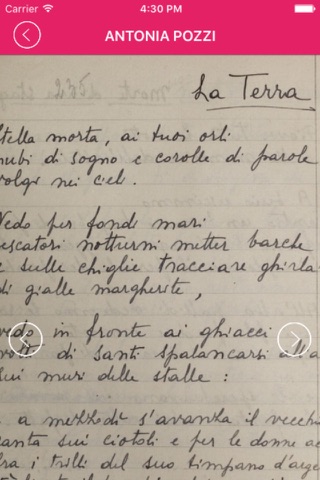 Carrier 4:30 PM
ANTONIA POZZI
La Terra
stella morta, ai tuoi orli
nubi di sogno e corolle di parole
volgi nei cieli.
Vedo per fondi mari
pescatori notturni metter barche
e sulle chiglie tracciare ghirla-
di gialle margherite,
vedo in fronte ai ghiacci
volti di santi spalancarsi all'a
sui muri delle stalle:
a mezzodì s'avanza il vecchio
canta sui ciotoli e per le donne ac
fra i trilli del suo timpano d'arge